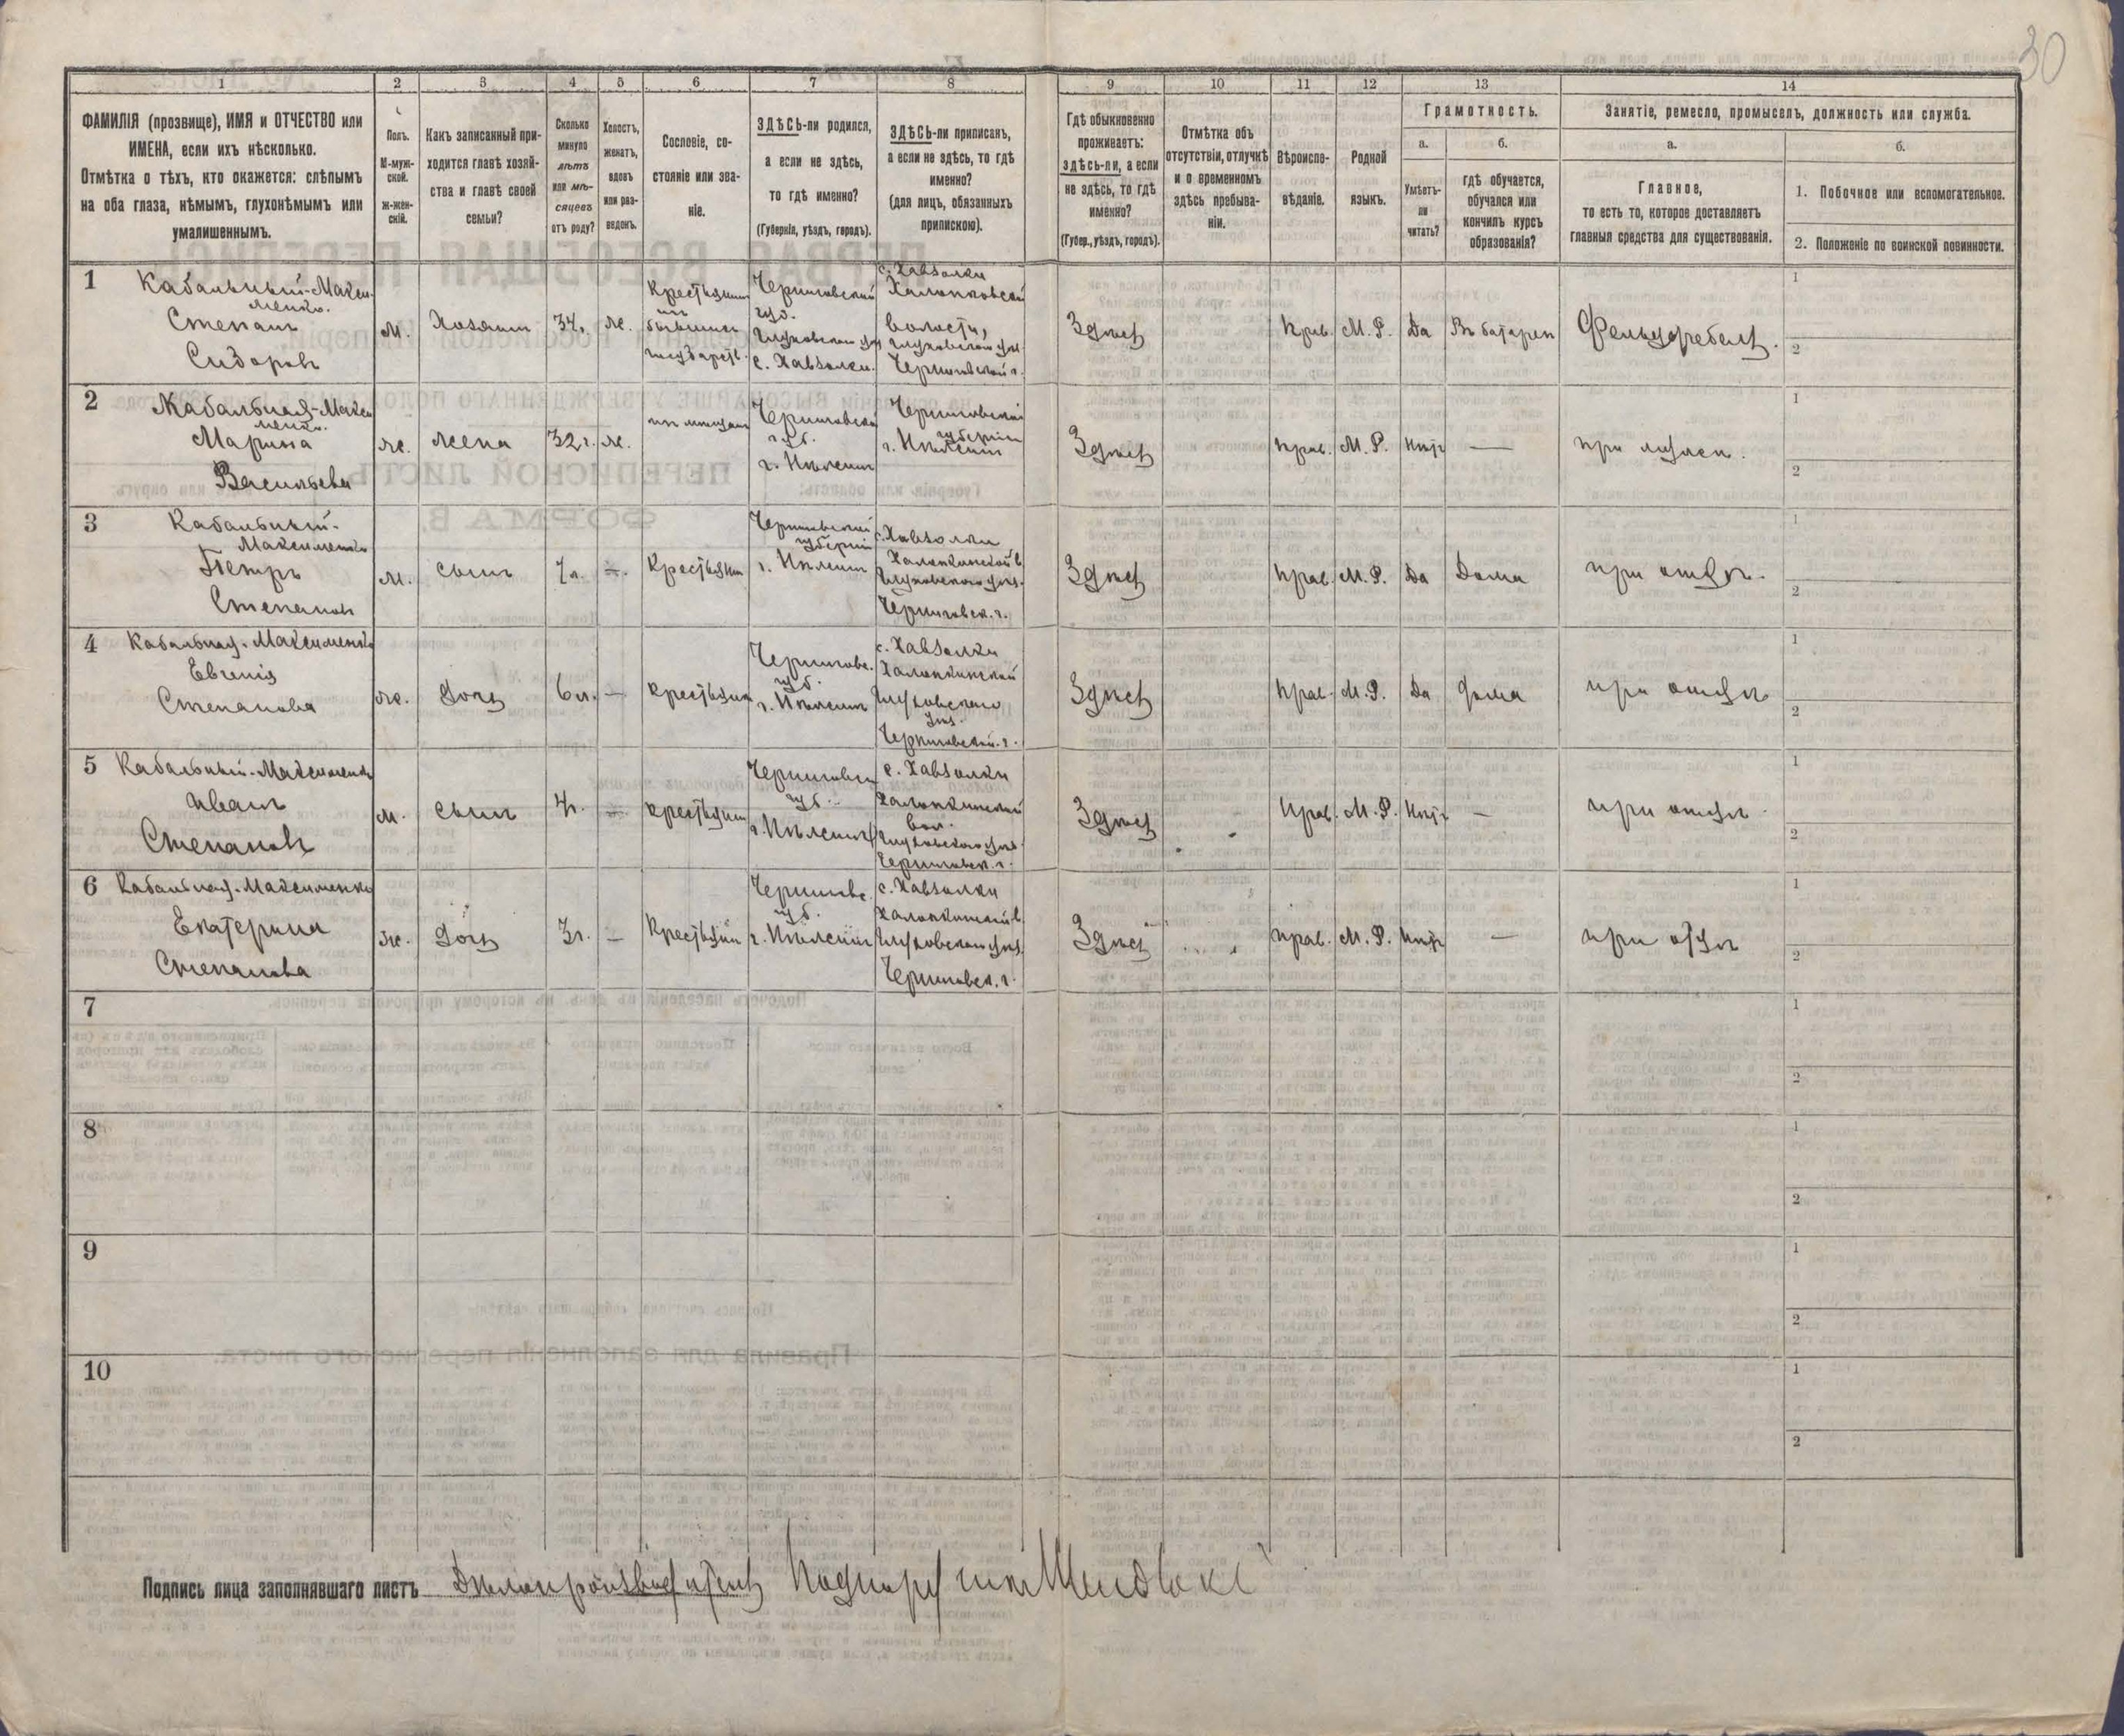 30
1 2 3 4 5 6 7 8 9 10 11 12 13 14
ФАМИЛІЯ (прозвище), ИМЯ и ОТЧЕСТВО или
ИМЕНА, если ихъ нѣсколько.
Отмѣтка о тѣхъ, кто окажется: слѣпымъ
на оба глаза, нѣмымъ, глухонѣмымъ или
умалишеннымъ.
Полъ.
М-муж-
ской.
Ж-жен-
скій.
Какъ записанный при-
ходится главѣ хозяй-
ства и главѣ своей
семьи?
Сколько
минуло
лѣтъ
или мѣ-
сяцевъ
отъ роду?
Холостъ,
женатъ,
вдовъ
или раз-
веденъ.
Сословіе, со-
стояніе или зва-
ніе.
ЗДѢСЬ-ли родился,
а если не здѣсь,
то гдѣ именно?
(Губернія, уѣздъ, городъ).
ЗДѢСЬ-ли приписанъ,
а если не здѣсь, то гдѣ
именно?
(для лицъ, обязанныхъ
припискою).
Гдѣ обыкновенно
проживаетъ:
здѣсь-ли, а если
не здѣсь, то гдѣ
именно?
(Губер., уѣздъ, городъ).
Отмѣтка объ
отсутствіи, отлучкѣ
и о временномъ
здѣсь пребыва-
ніи.
Вѣроиспо-
вѣданіе.
Родной
языкъ.
Грамотность.
а.
Умѣетъ-
ли
читать?
б.
гдѣ обучается,
обучался или
кончилъ курсъ
образованія?
Занятіе, ремесло, промыселъ, должность или служба.
а.
Главное,
то есть то, которое доставляетъ
главныя средства для существованія.
б.
1. Побочное или вспомогательное.
2. Положеніе по воинской повинности.
1
Кабальный-Макси-
менко.
Степанъ
Сидоровъ
м.
Хозяинъ
34.
ж.
Крестьянинъ
Черниговской
губ.
Глуховскаго
с.
волости,
Глуховскаго
Черниговской г.
Здѣсь
Прав.
М. Р.
Да
Въ батареи
Фельдфебель.
1
2
2
Кабальная-Макси
менко.
Марина
Васильева
ж.
жена
32 г.
ж.
изъ мещанъ
Черниговской
губ.
г. Нѣжинъ
Черниговской
губерніи
г. Нѣжинъ
Здѣсь
прав.
М. Р.
Нѣтъ
—
при мужѣ.
1
2
3
Кабальный-
Максименко
Петръ
Степановъ
м.
сынъ
7 л.
—.
Крестьянин
Черниговской
губерніи
г. Нѣжинъ
Глуховскаго
Черниговск. г.
Здѣсь
прав.
М. Р.
Да
Дома
при отцѣ.
1
2
4
Кабальная-Максименко
Евгенія
Степанова
ж.
Дочь
6 л.
—
крестьянин
Черниговс.
губ.
г. Нѣжинъ
Глуховскаго
Черниговской г.
Здѣсь
прав.
М. Р.
Да
Дома
при отцѣ
1
2
5
Кабальный-Максименко
Иванъ
Степановъ
м.
сынъ
4 г.
—
крестьянин
Черниговск
губ.
г. Нѣжинъ
вол.
Глуховскаго
Черниговск. г.
Здѣсь
Прав.
М. Р.
Нѣтъ
—
при отцѣ
1
2
6
Кабальная-Максименко
Екатерина
Степанова
ж.
Дочь
3 г.
—
Крестьянин
Черниговс.
губ.
г. Нѣжинъ
Глуховскаго
Черниговск. г.
Здѣсь
прав.
М. Р.
Нѣтъ
—
при отцѣ
1
2
7
1
2
8
1
2
9
1
2
10
1
2
Подпись лица заполнявшаго листъ Дѣлопроизводитель